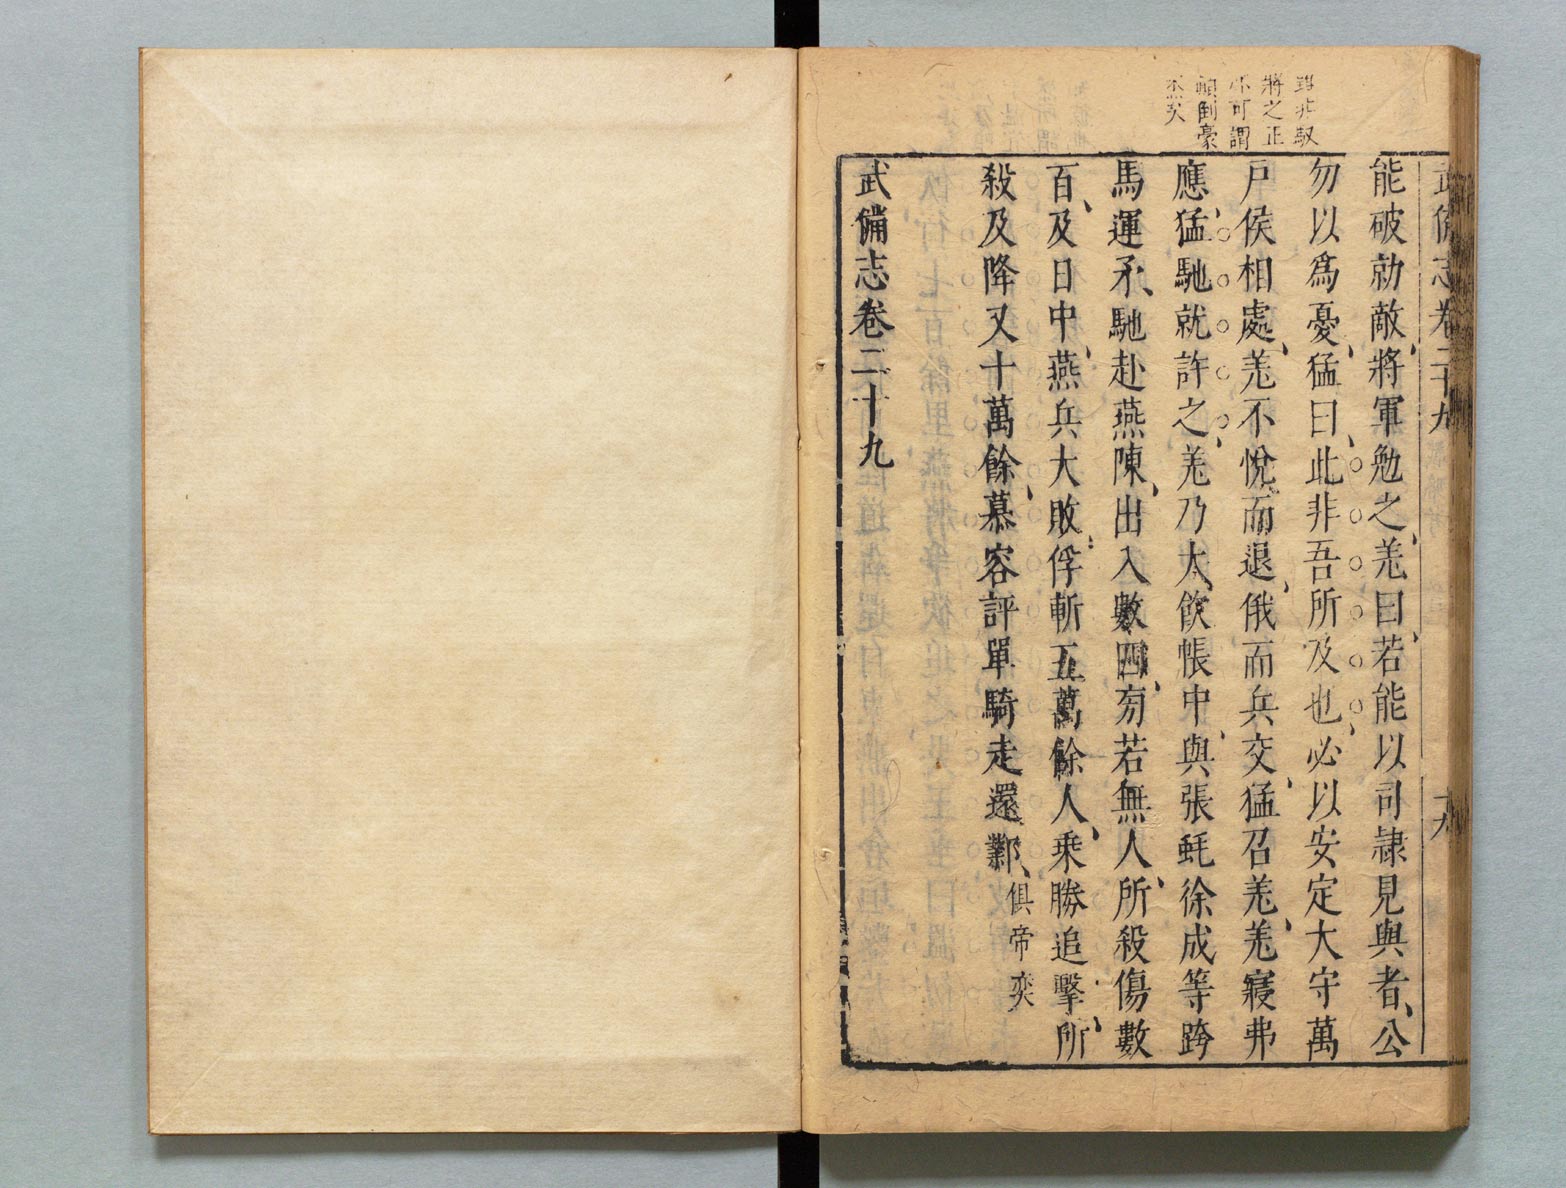 雖非馭
將之正
亦可謂
顛倒豪
杰矣
武備志卷二十九
十九
能破勍敵將軍勉之羌曰若能以司隷見與者公
勿以爲憂猛曰此非吾所及也必以安定大守萬
戸侯相處羌不悅而退俄而兵交猛召羌羌寢弗
應猛馳就許之羌乃大飲帳中與張蚝徐成等跨
馬運矛馳赴燕陳出入數四旁若無人所殺傷數
百及日中燕兵大敗俘斬五萬餘人乗勝追擊所
殺及降又十萬餘慕容評單騎走還鄴俱帝奕
武備志卷二十九